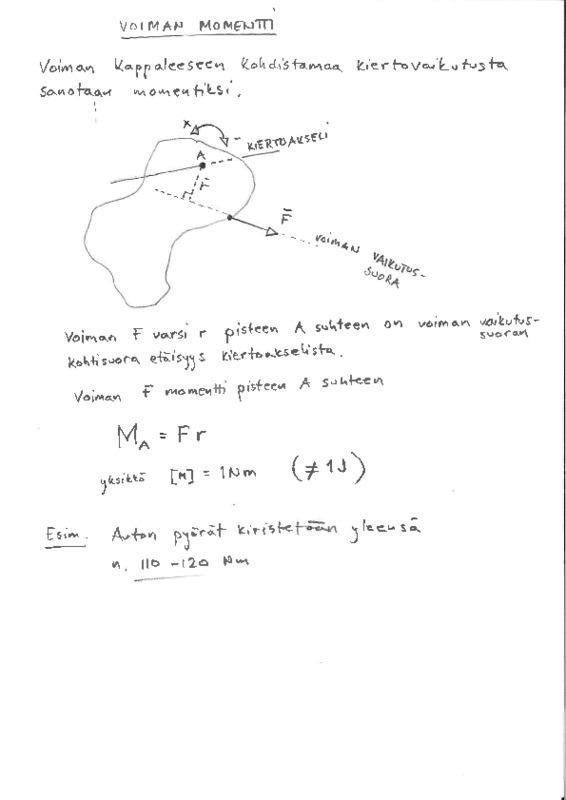 VOIMAN MOMENTTI
Voiman kappaleeseen kohdistamaa kiertovaikutusta
sanotaan momentiksi.
A
KIERTOAKSELI
r̄
F̄
VOIMAN VAIKUTUS-
SUORA
Voiman F varsi r pisteen A suhteen on voiman vaikutus-
suoran
kohtisuora etäisyys kiertoakselista.
Voiman F momentti pisteen A suhteen
M_A = Fr
yksikkö [M] = 1Nm (≠ 1J)
Esim. Auton pyörät kiristetään yleensä
n. 110 - 120 Nm